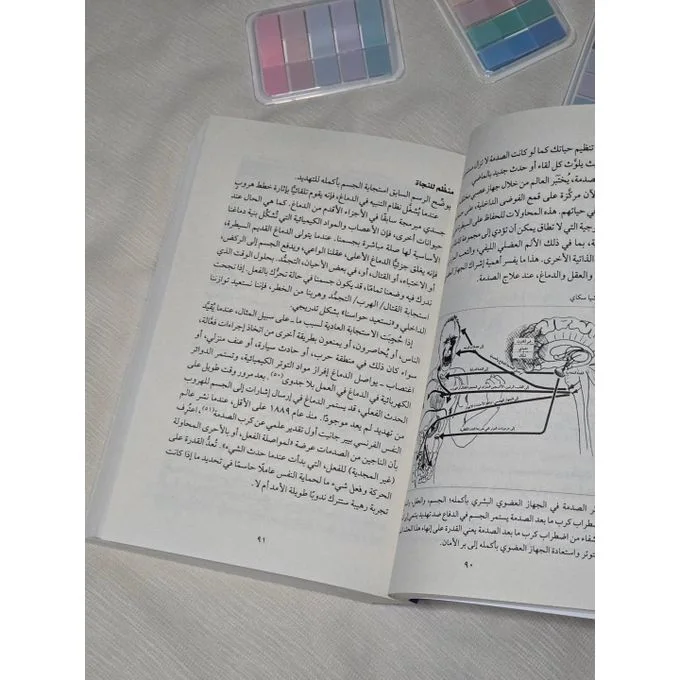 تنظيم حياتك كما لو كانت الصدمة لا تزال
يلوّث كل لقاء أو حدث جديد بالماضي
صدمة، يُختَبر العالم من خلال جهاز عصبي
الآن مركَّزة على قمع الفوضى الداخلية
في حياتهم. هذه المحاولات للحفاظ على
التي لا تطاق يمكن أن تؤدي إلى مجموعة
بما في ذلك الألم العضلي الليفي، والتعب
الذاتية الأخرى. هذا ما يفسر أهمية إشراك
والعقل والدماغ، عند علاج الصدمة.
سكاي
الصدمة في الجهاز العضوي البشري بأكمله؛ الجسم، والعقل،
اضطراب كرب ما بعد الصدمة يستمر الجسم في الدفاع ضد تهديد
من اضطراب كرب ما بعد الصدمة يعني القدرة على إنهاء هذا
توتر واستعادة الجهاز العضوي بأكمله إلى بر الأمان.
٩٠
منظَّم للنجاة
يوضّح الرسم السابق استجابة الجسم بأكمله للتهديد.
عندما يُشغَّل نظام التنبيه في الدماغ، فإنه يقوم تلقائيًّا بإثارة خطط هروب
جسدي مبرمجة سابقًا في الأجزاء الأقدم من الدماغ. كما هي الحال عند
حيوانات أخرى، فإن الأعصاب والمواد الكيميائية التي تُشكِّل بنية دماغنا
الأساسية لها صلة مباشرة بجسمنا. عندما يتولى الدماغ القديم السيطرة،
فإنه يغلق جزئيًّا الدماغ الأعلى، عقلنا الواعي، ويدفع الجسم إلى الركض،
أو الاختباء، أو القتال، أو، في بعض الأحيان، التجمُّد. بحلول الوقت الذي
ندرك فيه وضعنا تمامًا، قد يكون جسمنا في حالة تحرُّك بالفعل. إذا نجحت
استجابة القتال/ الهرب/ التجمُّد وهربنا من الخطر، فإننا نستعيد توازننا
الداخلي و«نستعيد حواسنا» بشكل تدريجي.
إذا حُجِبَت الاستجابة العادية لسبب ما – على سبيل المثال، عندما يُقيَّد
الناس، أو يُحاصرون، أو يمنعون بطريقة أخرى من اتخاذ إجراءات فعَّالة،
سواء كان ذلك في منطقة حرب، أو حادث سيارة، أو عنف منزلي، أو
اغتصاب – يواصل الدماغ إفراز مواد التوتر الكيميائية، وتستمر الدوائر
الكهربائية في الدماغ في العمل بلا جدوى(٥٠). بعد مرور وقت طويل على
الحدث الفعلي، قد يستمر الدماغ في إرسال إشارات إلى الجسم للهروب
من تهديد لم يعد موجودًا. منذ عام ١٨٨٩ على الأقل، عندما نشر عالم
النفس الفرنسي بيير جانيت أول تقدير علمي عن كرب الصدمة(٥١)، اعتُرف
بأن الناجين من الصدمات عرضة «لمواصلة الفعل، أو بالأحرى المحاولة
(غير المجدية) للفعل، التي بدأت عندما حدث الشيء». تُعدُّ القدرة على
الحركة وفعل شيء ما لحماية النفس عاملًا حاسمًا في تحديد ما إذا كانت
تجربة رهيبة ستترك ندوبًا طويلة الأمد أم لا.
٩١